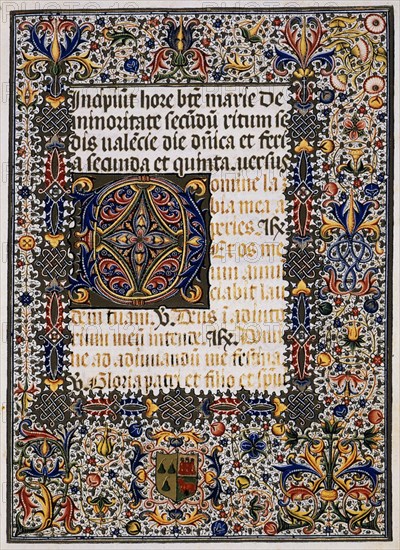 Incipiunt hore bte marie de
minoritate secundu ritum se
dis ualecie die dnica et feri
a secunda et quinta. versus
Domine la
bia mea a
peries. R.
Et os me
um annu
ciabit lau
dem tuam. V. Deus i adiuto
rium meu intende. R. Domi
ne ad adiuuandu me festina
V. Gloria patri et filio et spui